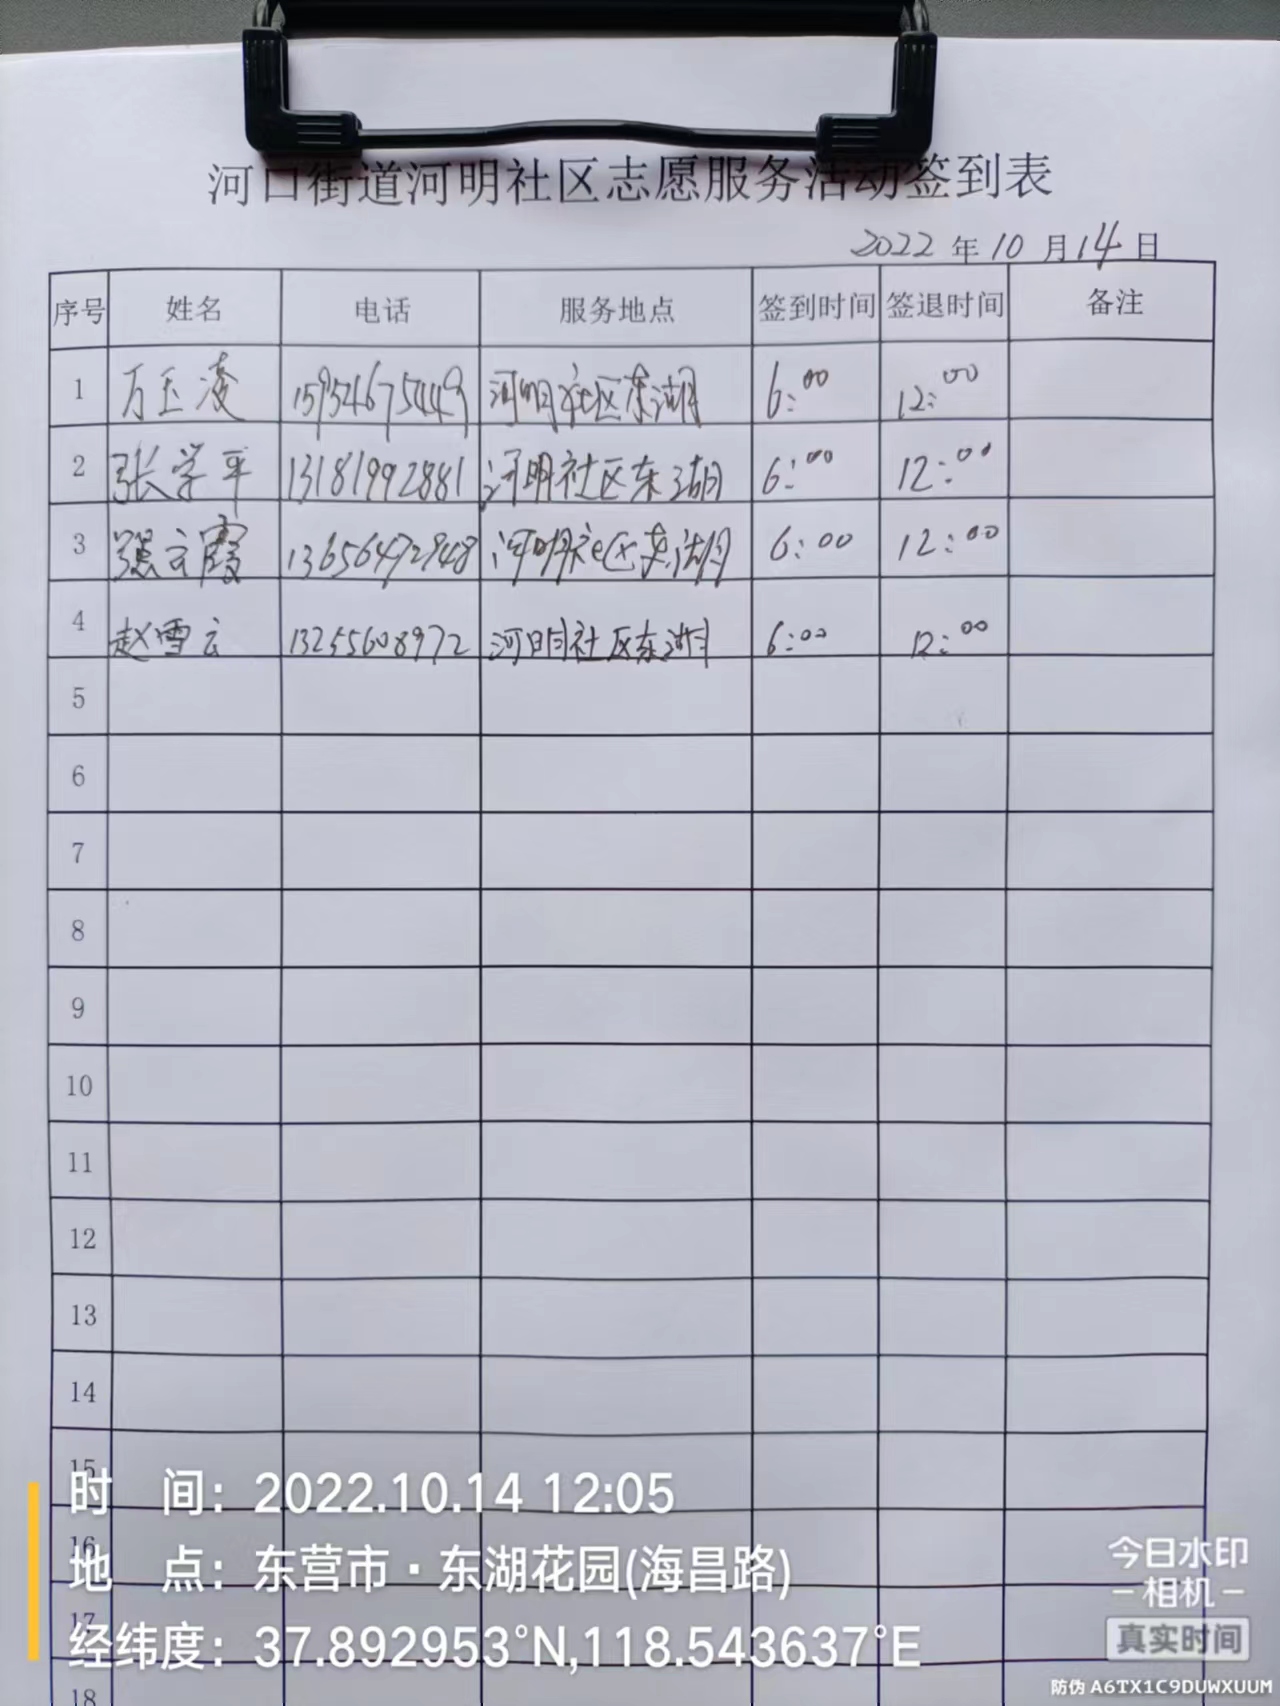 河口街道河明社区志愿服务活动签到表
2022 年 10 月 14 日
序号 姓名 电话 服务地点 签到时间 签退时间 备注
1 万玉凌 15954675449 河明社区东湖 6:00 12:00
2 张学平 13181992881 河明社区东湖 6:00 12:00
3 13656472948 河明社区东湖 6:00 12:00
4 赵雪云 13255608972 河明社区东湖 6:00 12:00
5
6
7
8
9
10
11
12
13
14
15
时 间：2022.10.14 12:05
16
地 点：东营市·东湖花园(海昌路)
17
经纬度：37.892953°N,118.543637°E
18
今日水印
-相机-
真实时间
防伪 A6TX1C9DUWXUUM